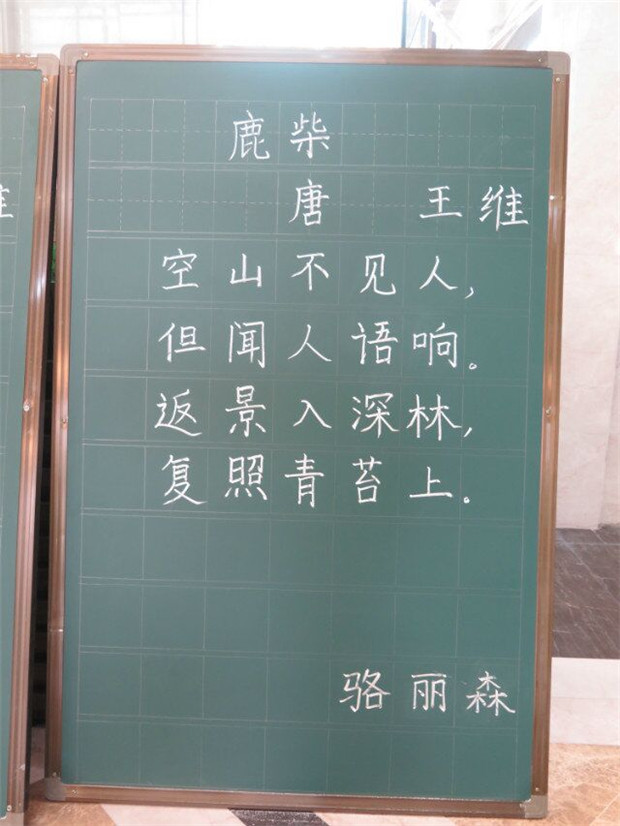 鹿柴
唐 王维
空山不见人，
但闻人语响。
返景入深林，
复照青苔上。
骆丽森